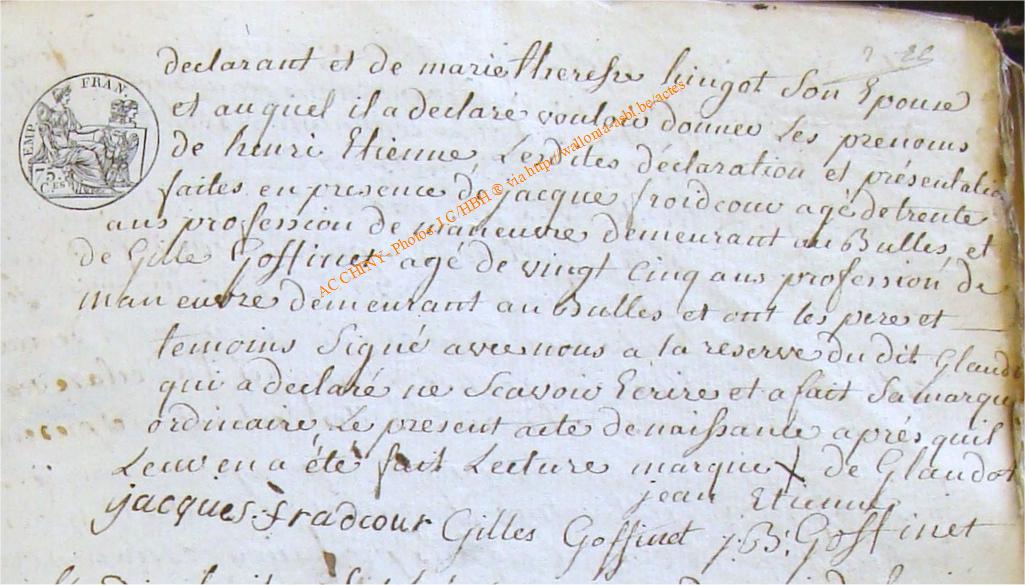 declarant et de marie therese hingot Son Epouse
et auquel il a declaré vouloir donner Les prenoms
de henri Etienne, Les dites déclaration et présentatio
faites en presence de jacque froidcour agé de trente
ans profession de maneuvre demeurant au Bulles, et
de Gille Goffinet agé de vingt cinq ans profession de
maneuvre demeurant au Bulles et ont les pere et
temoins Signé avec nous a la reserve du dit Glaudo
qui a declaré ne Scavoir Ecrire et a fait Sa marqu
ordinaire, Le present acte de naissance après quil
Leur en a été fait Lecture marque X de Glaudot
jean Etienne
jacques fradcour Gilles Goffinet J.B. Goffinet
TIMP. FRAN.
75.
C.ES
AC CHINY - Photos J.C/HBH ® via http://wallonia-asbl.be/actes